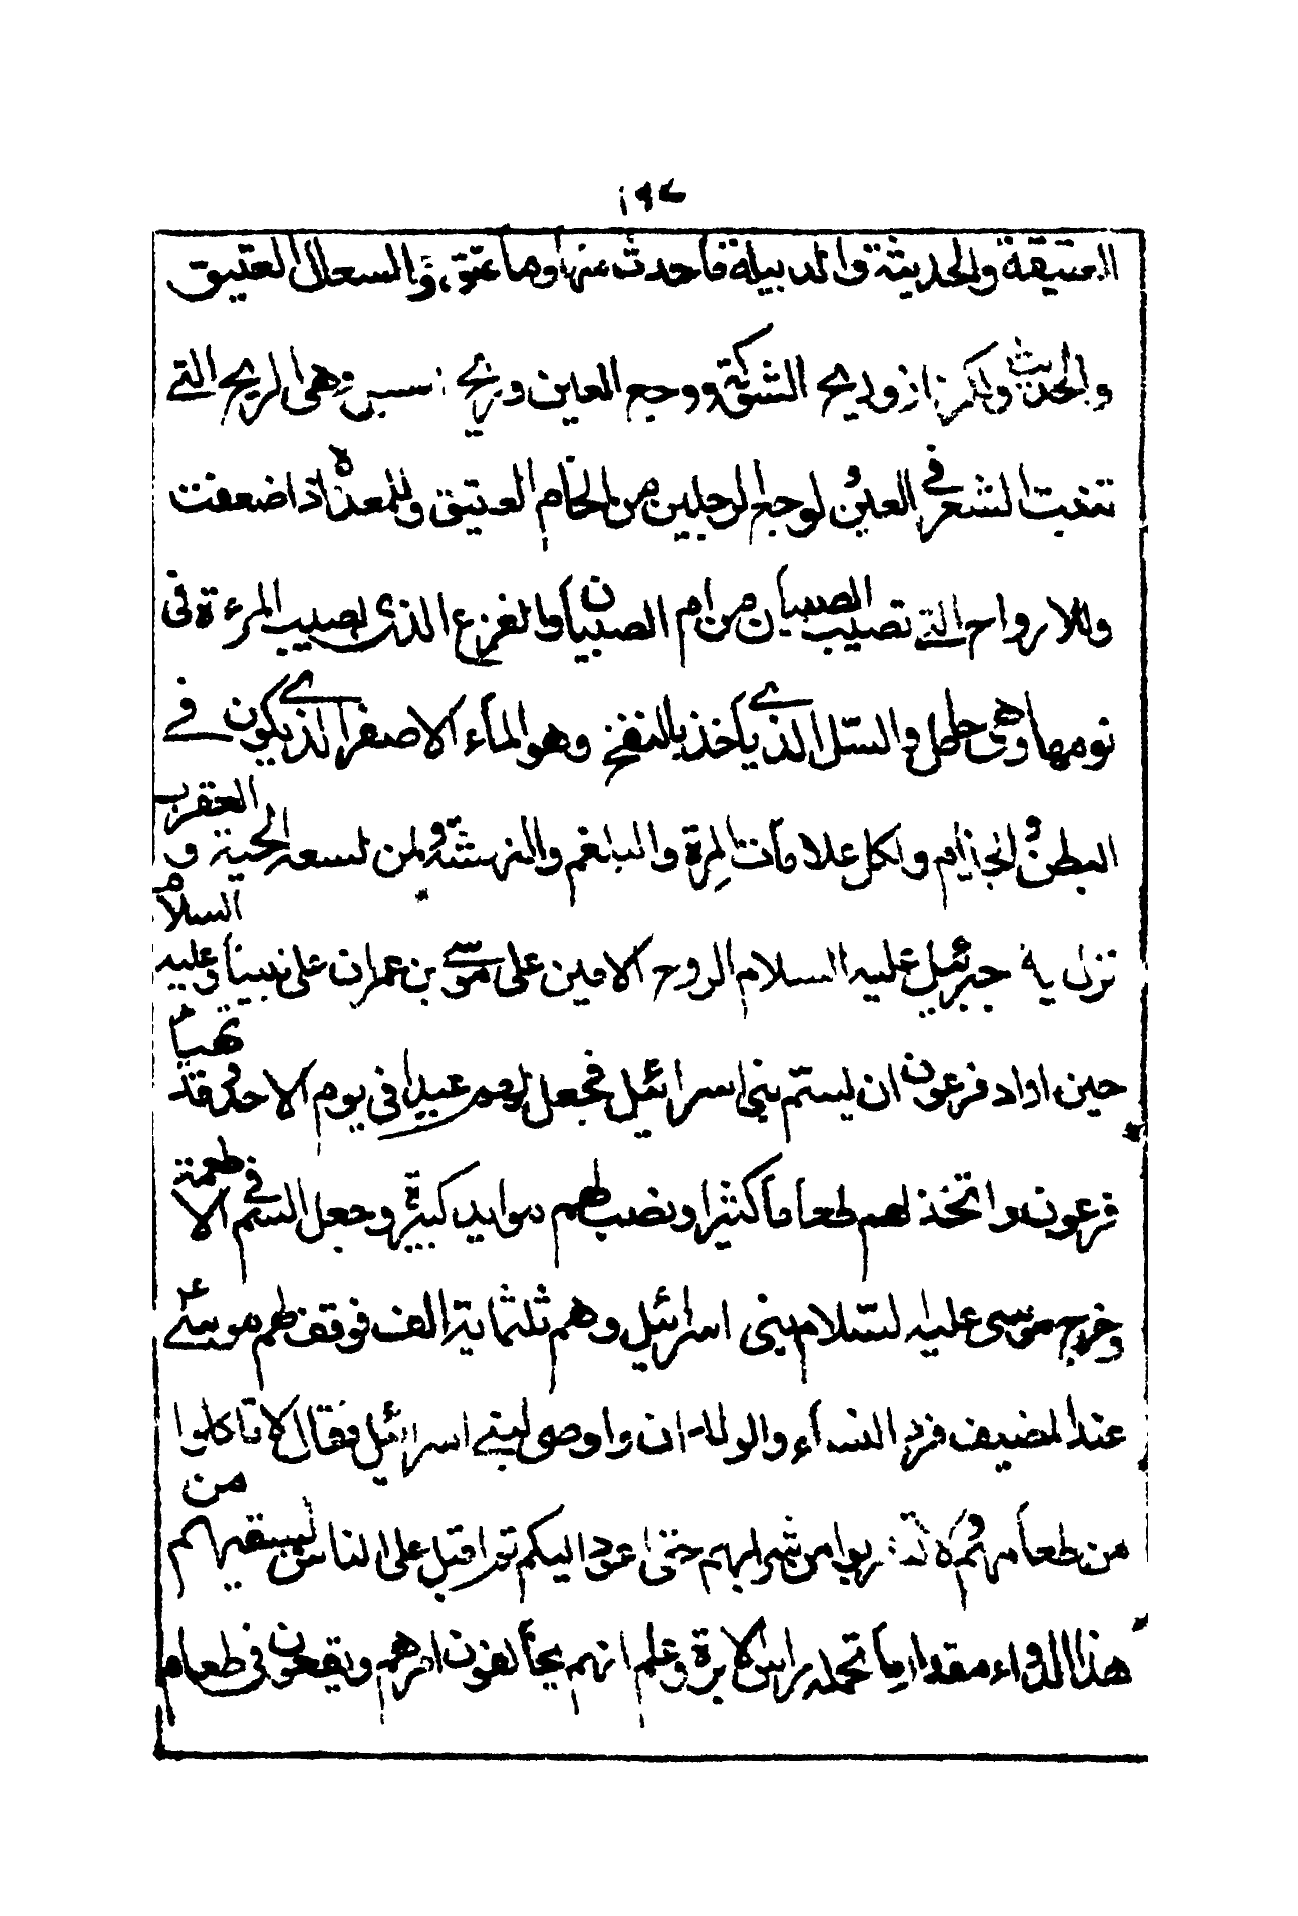 ١٩٢
العتيقة والحديثة والدبيلة ما حدث منها وما عتق والسعال العتيق
والحديث والكزاز وريح الشوكة ووجع العين وريح السبل وهى الريح التے
تنبت الشعر فے العين ولوجع الرجلين من الخام العتيق وللمعدة اذا ضعفت
وللارواح التے تصيب الصبيان من ام الصبيان والفزع الذى يصيب المرءة فى
نومها وهى حامل والسل الذے يأخذ بالنفخ وهو الماء الاصفر الذے يكون فے
البطن والجذام ولكل علامات المرة والبلغم والنهشة ولمن تسعه الحية و العقرب
نزل به جبرئيل عليه السلام الروح الامين على موسے بن عمران على نبينا وعليه السلام
حين اراد فرعون ان يستم بنى اسرائيل فجعل لهم عيدا فى يوم الاحد وقد تهيأ
فرعون واتخذ لهم طعاما كثيرا ونصب لهم موايد كثيرة وجعل السم فے الاطعمة
وخرج موسى عليه السلام ببنى اسرائيل وهم ثلثمائة الف فوقف لهم موسے ع
عند المضيف فرد النساء والولدان واوصى لبنے اسرائيل فقال لا تأكلوا
من طعامهم ولا تشربوا من شرابهم حتى اعود اليكم ثم اقبل على الناس يسقيهم من
هذا الدواء مقدار ما تحمله راس الابرة وعلم انهم يخالفون امرهم ويقعون فى طعام